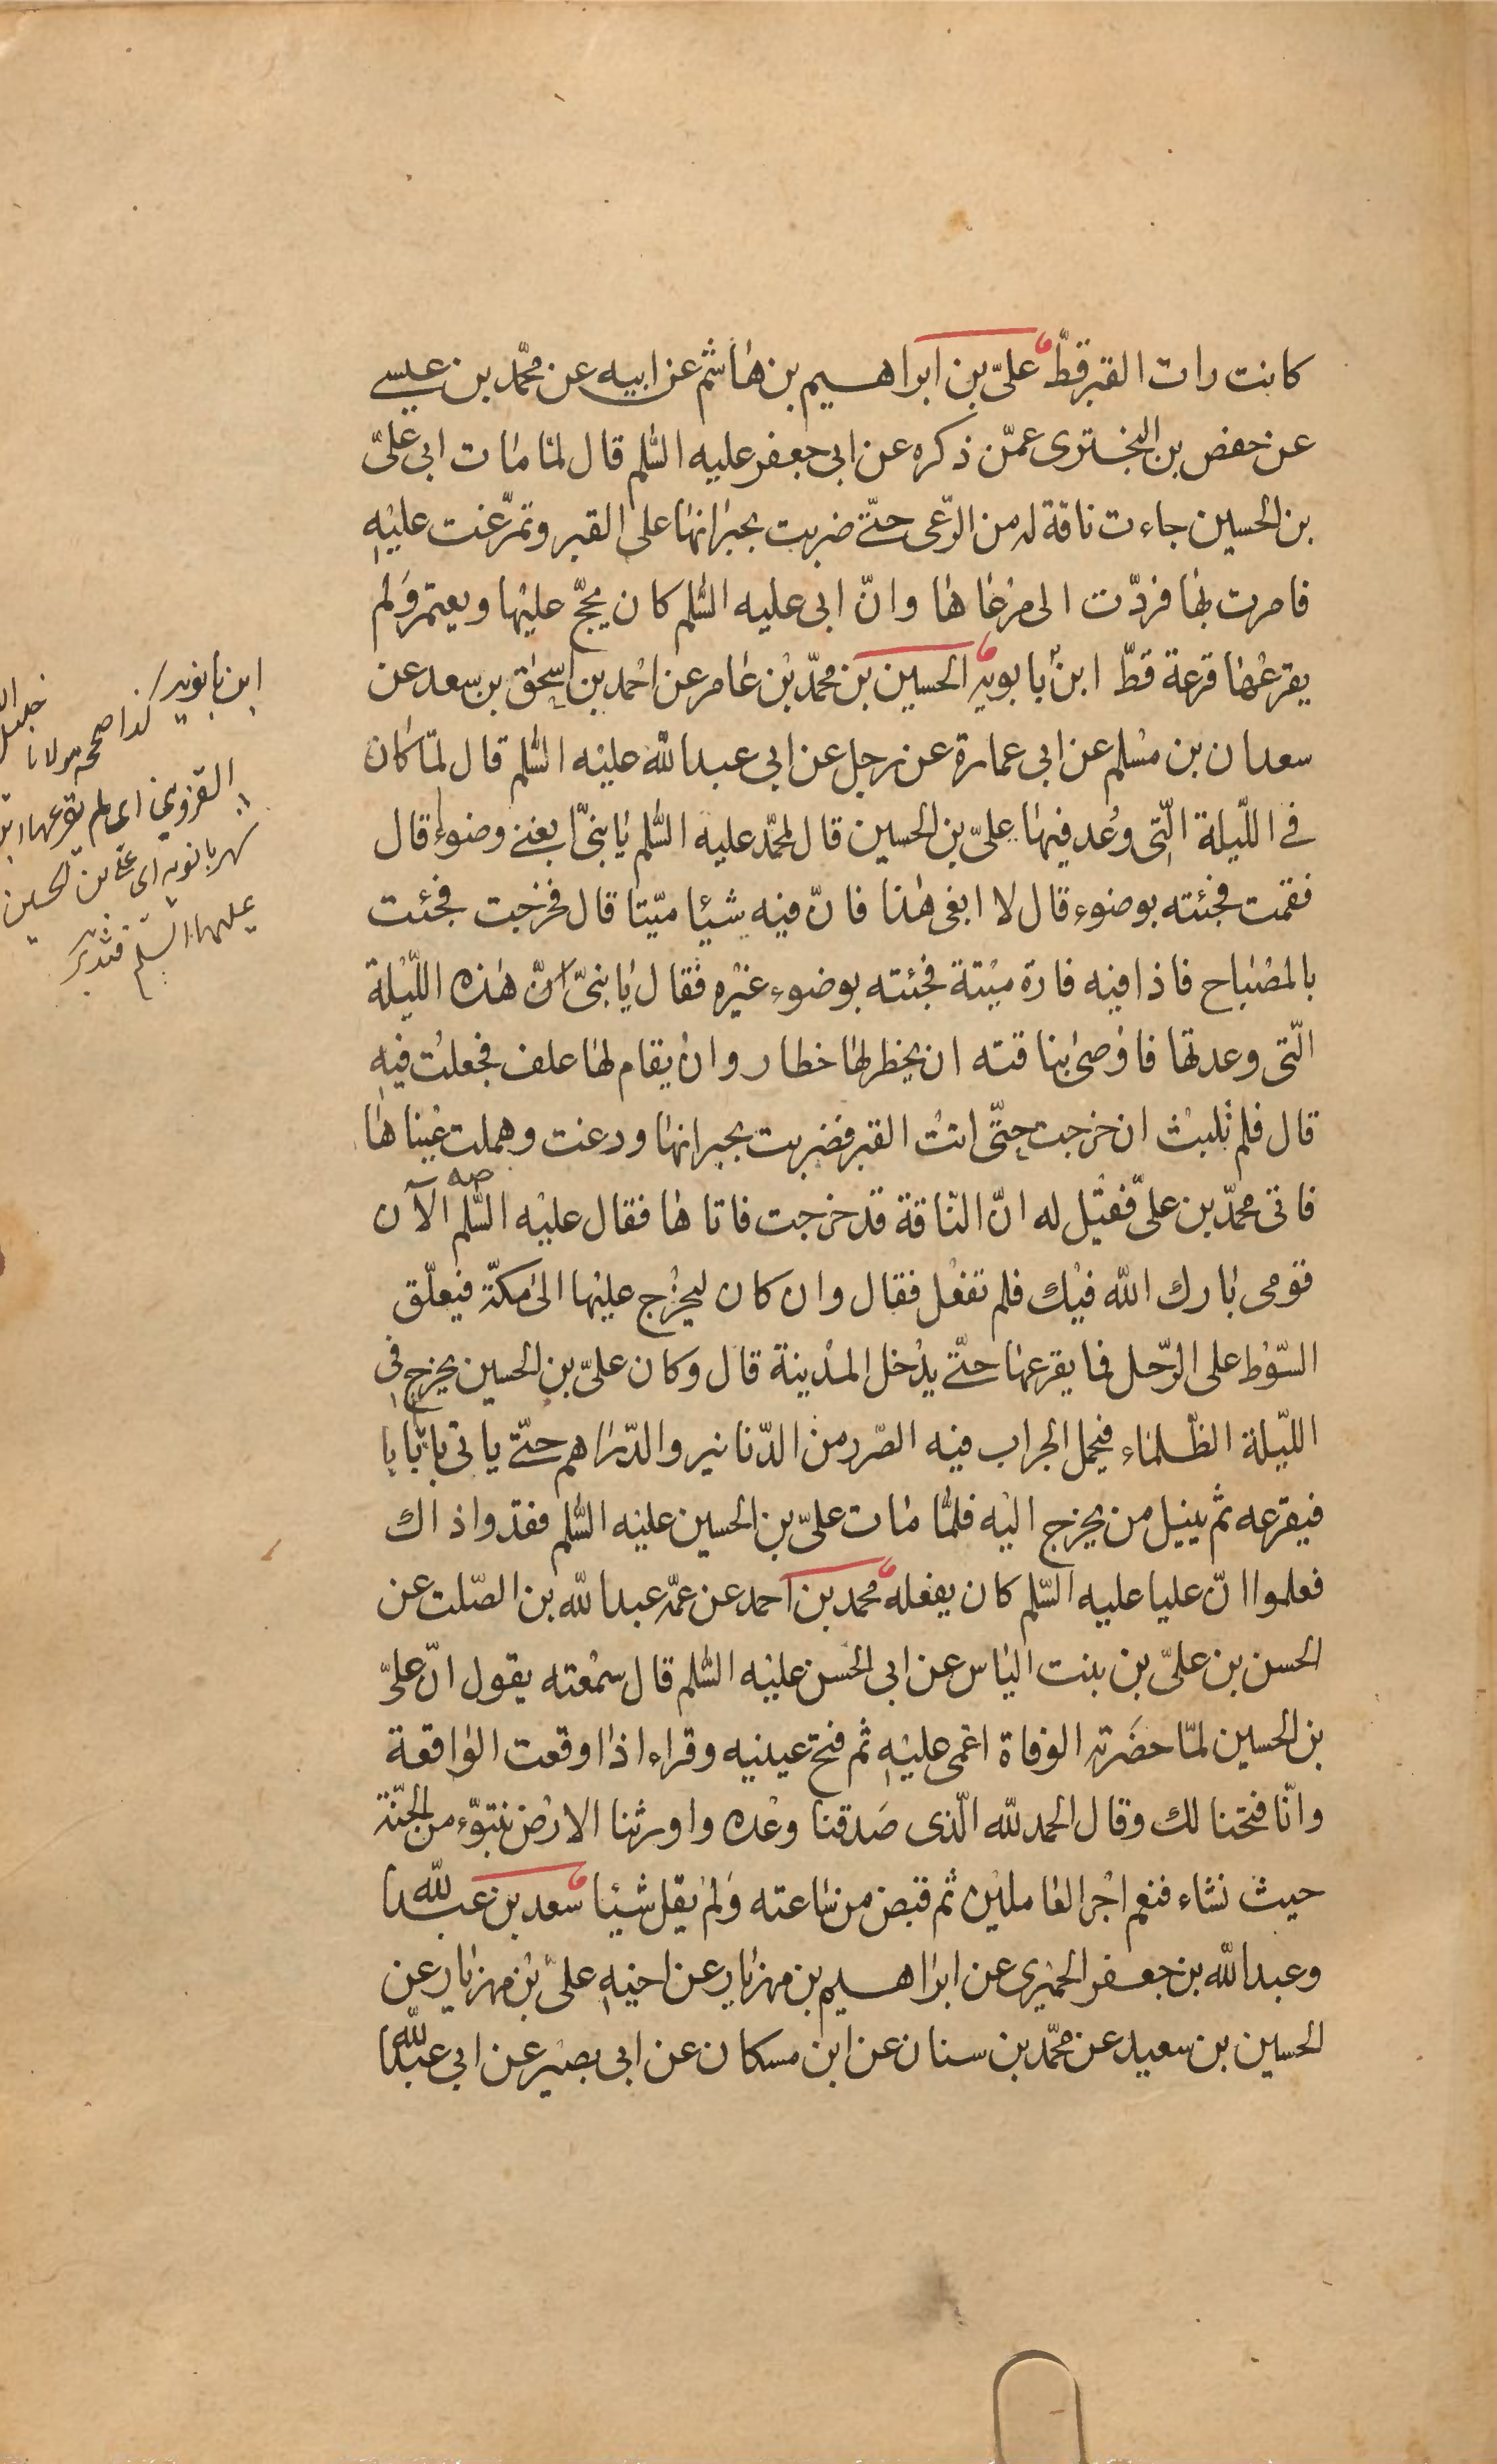 كانت رات القبر قطّ علىّ بن ابراهيم بن هاشم عن ابيه عن محمّد بن عيسى
عن حفص بن البخترى عمّن ذكره عن ابى جعفر عليه السّلم قال لمّا مات ابى علىّ
بن الحسين جاءت ناقة له من الرّعى حتّى ضربت بجرانها على القبر وتمرّغت عليه
فامرت بها فردّت الى مرعاها وانّ ابى عليه السّلم كان يحجّ عليها ويعتمر ولم
يقرعها قرعة قطّ ابن بابويه الحسين بن محمّد بن عامر عن احمد بن اسحق بن سعد عن
سعدان بن مسلم عن ابى عمارة عن رجل عن ابى عبدالله عليه السّلم قال لمّا كان
فى اللّيلة الّتى وُعد فيها علىّ بن الحسين قال لمحمّد عليه السّلم يا بنىّ ابغنى وضوءا قال
فقمت فجئته بوضوء قال لا ابغى هذا فانّ فيه شيئا ميّتا قال فخرجت فجئت
بالمصباح فاذا فيه فارة ميتة فجئته بوضوء غيره فقال يا بنىّ انّ هذه اللّيلة
الّتى وعدتها فاوصى بناقته ان يخظر لها خطار وان يقام لها علف فجعلت فيه
قال فلم تلبث ان خرجت حتّى اتت القبر فضربت بجرانها ورعنت وهملت عيناها
فاتى محمّد بن علىّ فقيل له انّ النّاقة قد خرجت فاتاها فقال عليه السّلم صه الآن
قومى بارك الله فيك فلم تفعل فقال وان كان ليخرج عليها الى مكّة فيعلّق
السّوط على الرّحل فما يقرعها حتّى يدخل المدينة قال وكان علىّ بن الحسين يخرج فى
اللّيلة الظّلماء فيحمل الجراب فيه الصّرر من الدّنانير والدّراهم حتّى ياتى بابا بابا
فيقرعه ثم ينيل من يخرج اليه فلمّا مات علىّ بن الحسين عليه السّلم فقدوا ذاك
فعلموا انّ عليا عليه السّلم كان يفعله محمد بن احمد عن عمّه عبدالله بن الصّلت عن
الحسن بن علىّ بن بنت الياس عن ابى الحسن عليه السّلم قال سمعته يقول انّ علىّ
بن الحسين لمّا حضرته الوفاة اغمى عليه ثم فتح عينيه وقراء اذا وقعت الواقعة
وانّا فتحنا لك وقال الحمد لله الّذى صدقنا وعده واورثنا الارض نتبوّء من الجنّة
حيث نشاء فنعم اجر العاملين ثم قبض من ساعته ولم يقل شيئا سعد بن عبدالله
وعبدالله بن جعفر الحميرى عن ابراهيم بن مهزيار عن اخيه علىّ بن مهزيار عن
الحسين بن سعيد عن محمّد بن سنان عن ابن مسكان عن ابى بصير عن ابى عبدالله
ابن بانويه كذا صححه مولانا خليل
القزوينى اى لم يقرعها ابن
شهربانويه اى على بن الحسين
عليهما السّلم فتدبر